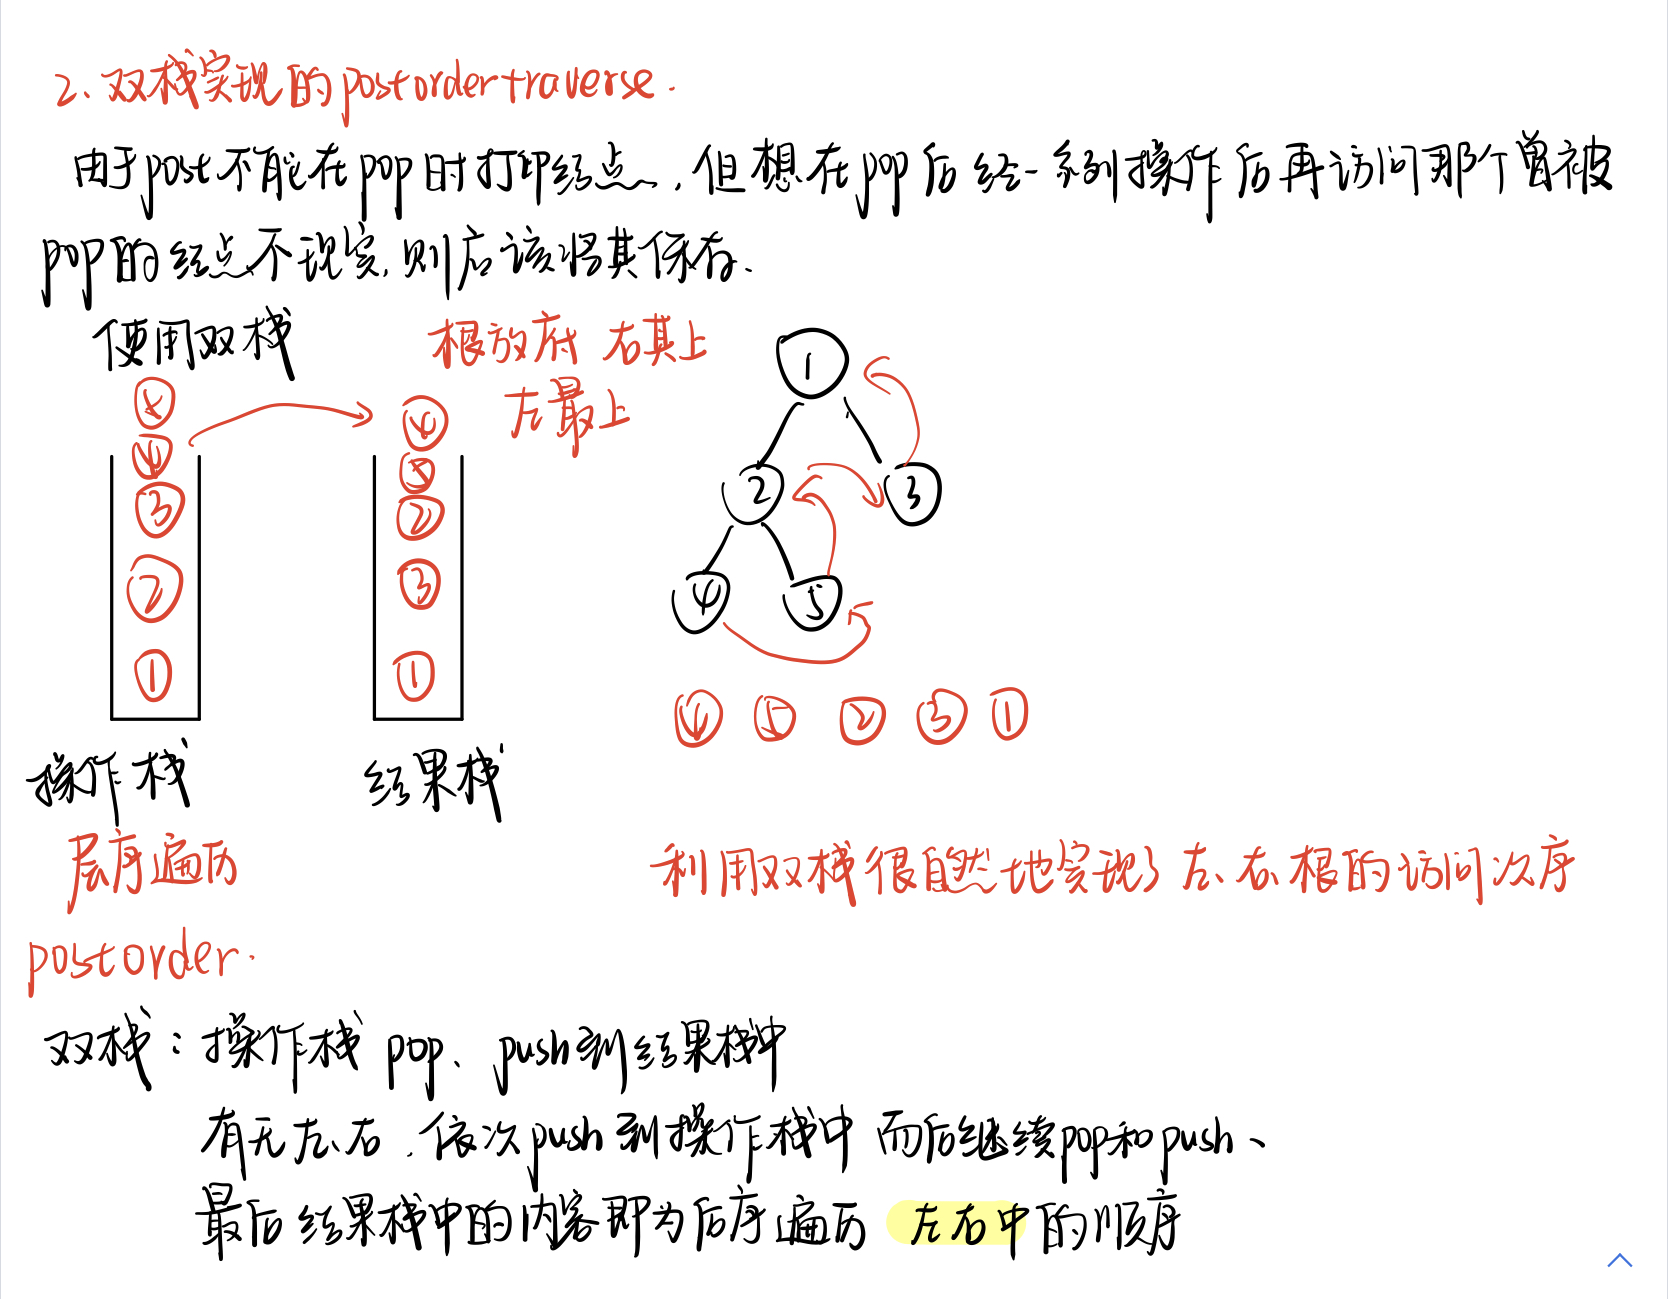 2、双栈实现的postordertraverse.
由于post不能在pop时打印结点,但想在pop后经一系列操作后再访问那个曾被
pop的结点不现实,则应该将其保存.
使用双栈
根放底 右其上
左最上
1
2 3
4 5
⑤
④
③
②
①
④
⑤
②
③
①
④ ⑤ ② ③ ①
操作栈
结果栈
层序遍历
利用双栈很自然地实现了左、右、根的访问次序
postorder.
双栈:操作栈 pop、push到结果栈中
有无左、右,依次push到操作栈中 而后继续pop和push、
最后结果栈中的内容即为后序遍历 左右中的顺序